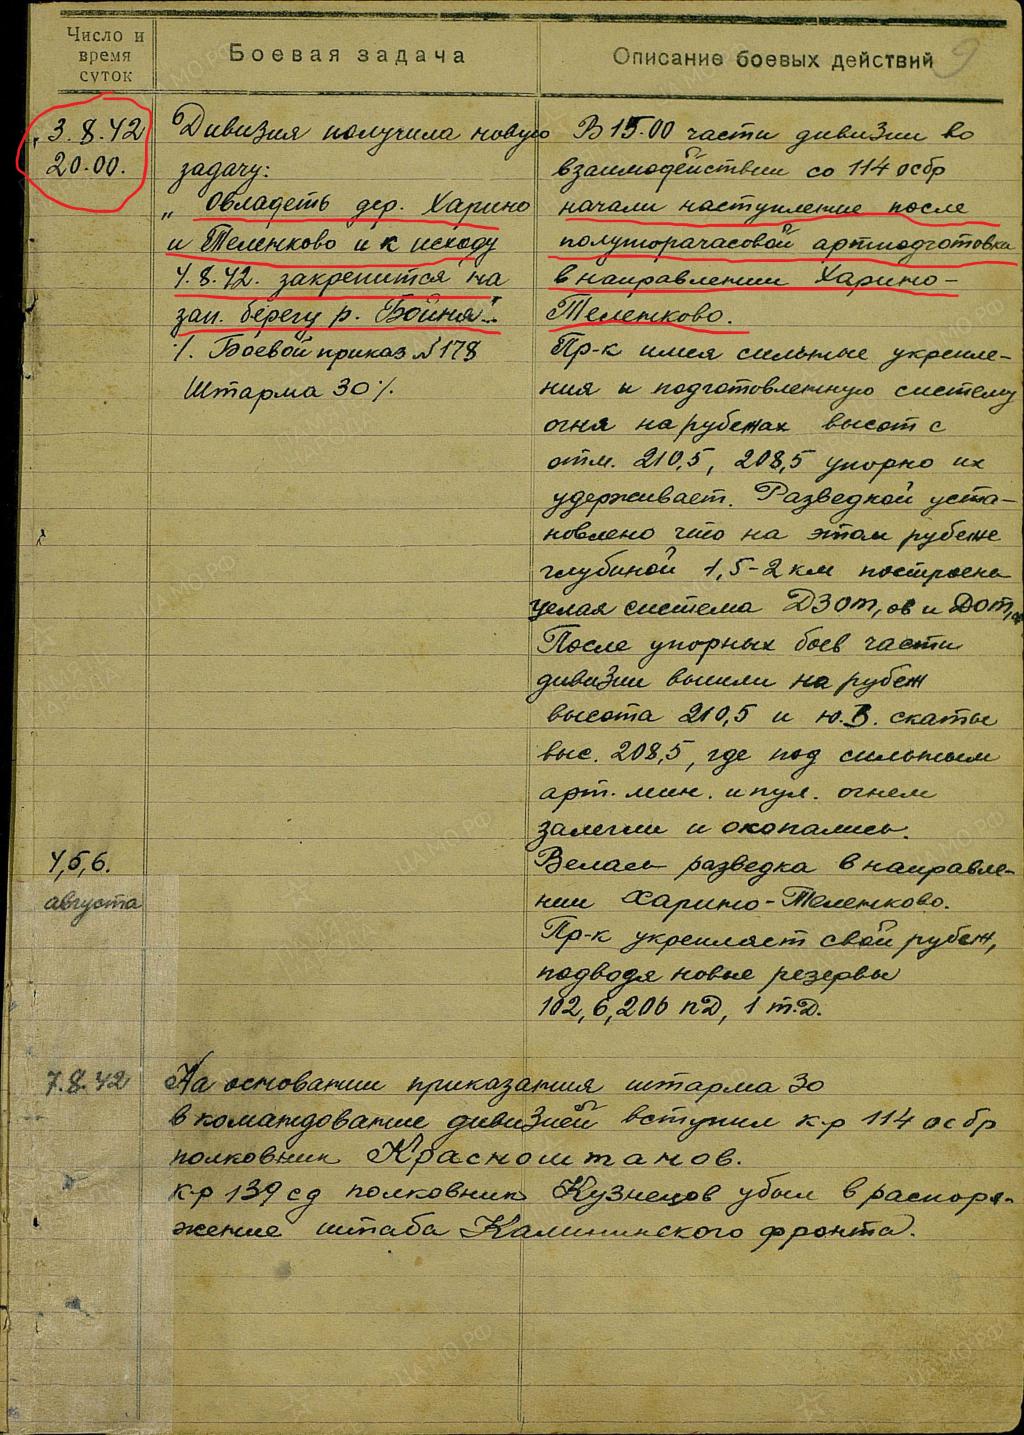 9
Число и
время
суток
Боевая задача
Описание боевых действий
3.8.42
20.00.
Дивизия получила новую
задачу:
„ Овладеть дер. Харино
и Теленково и к исходу
4.8.42. закрепится на
зап. берегу р. Бойня."
%. Боевой приказ №178
Штарма 30%.
В 15.00 части дивизии во
взаимодействии со 114 осбр
начали наступление после
полуторачасовой артподготовки
в направлении Харино-
Теленково.
Пр-к имея сильные укрепле-
ния и подготовленную систему
огня на рубежах высот с
отм. 210,5, 208,5 упорно их
удерживает. Разведкой уста-
новлено что на этом рубеже
глубиной 1,5-2 км построена
целая система ДЗОТ,ов и ДОТ,ов
После упорных боев части
дивизии вышли на рубеж
высота 210,5 и ю.В. скаты
выс. 208,5, где под сильным
арт. мин. и пул. огнем
залегли и окопались.
4,5,6.
августа
Велась разведка в направле-
нии Харино-Теленково.
Пр-к укрепляет свой рубеж,
подводя новые резервы
102, 6, 206 пД, 1 т.Д.
7.8.42
На основании приказания штарма 30
в командование дивизией вступил к-р 114 осбр
полковник Красноштанов.
к-р 139 сд полковник Кузнецов убыл в распоря-
жение штаба Калининского фронта.